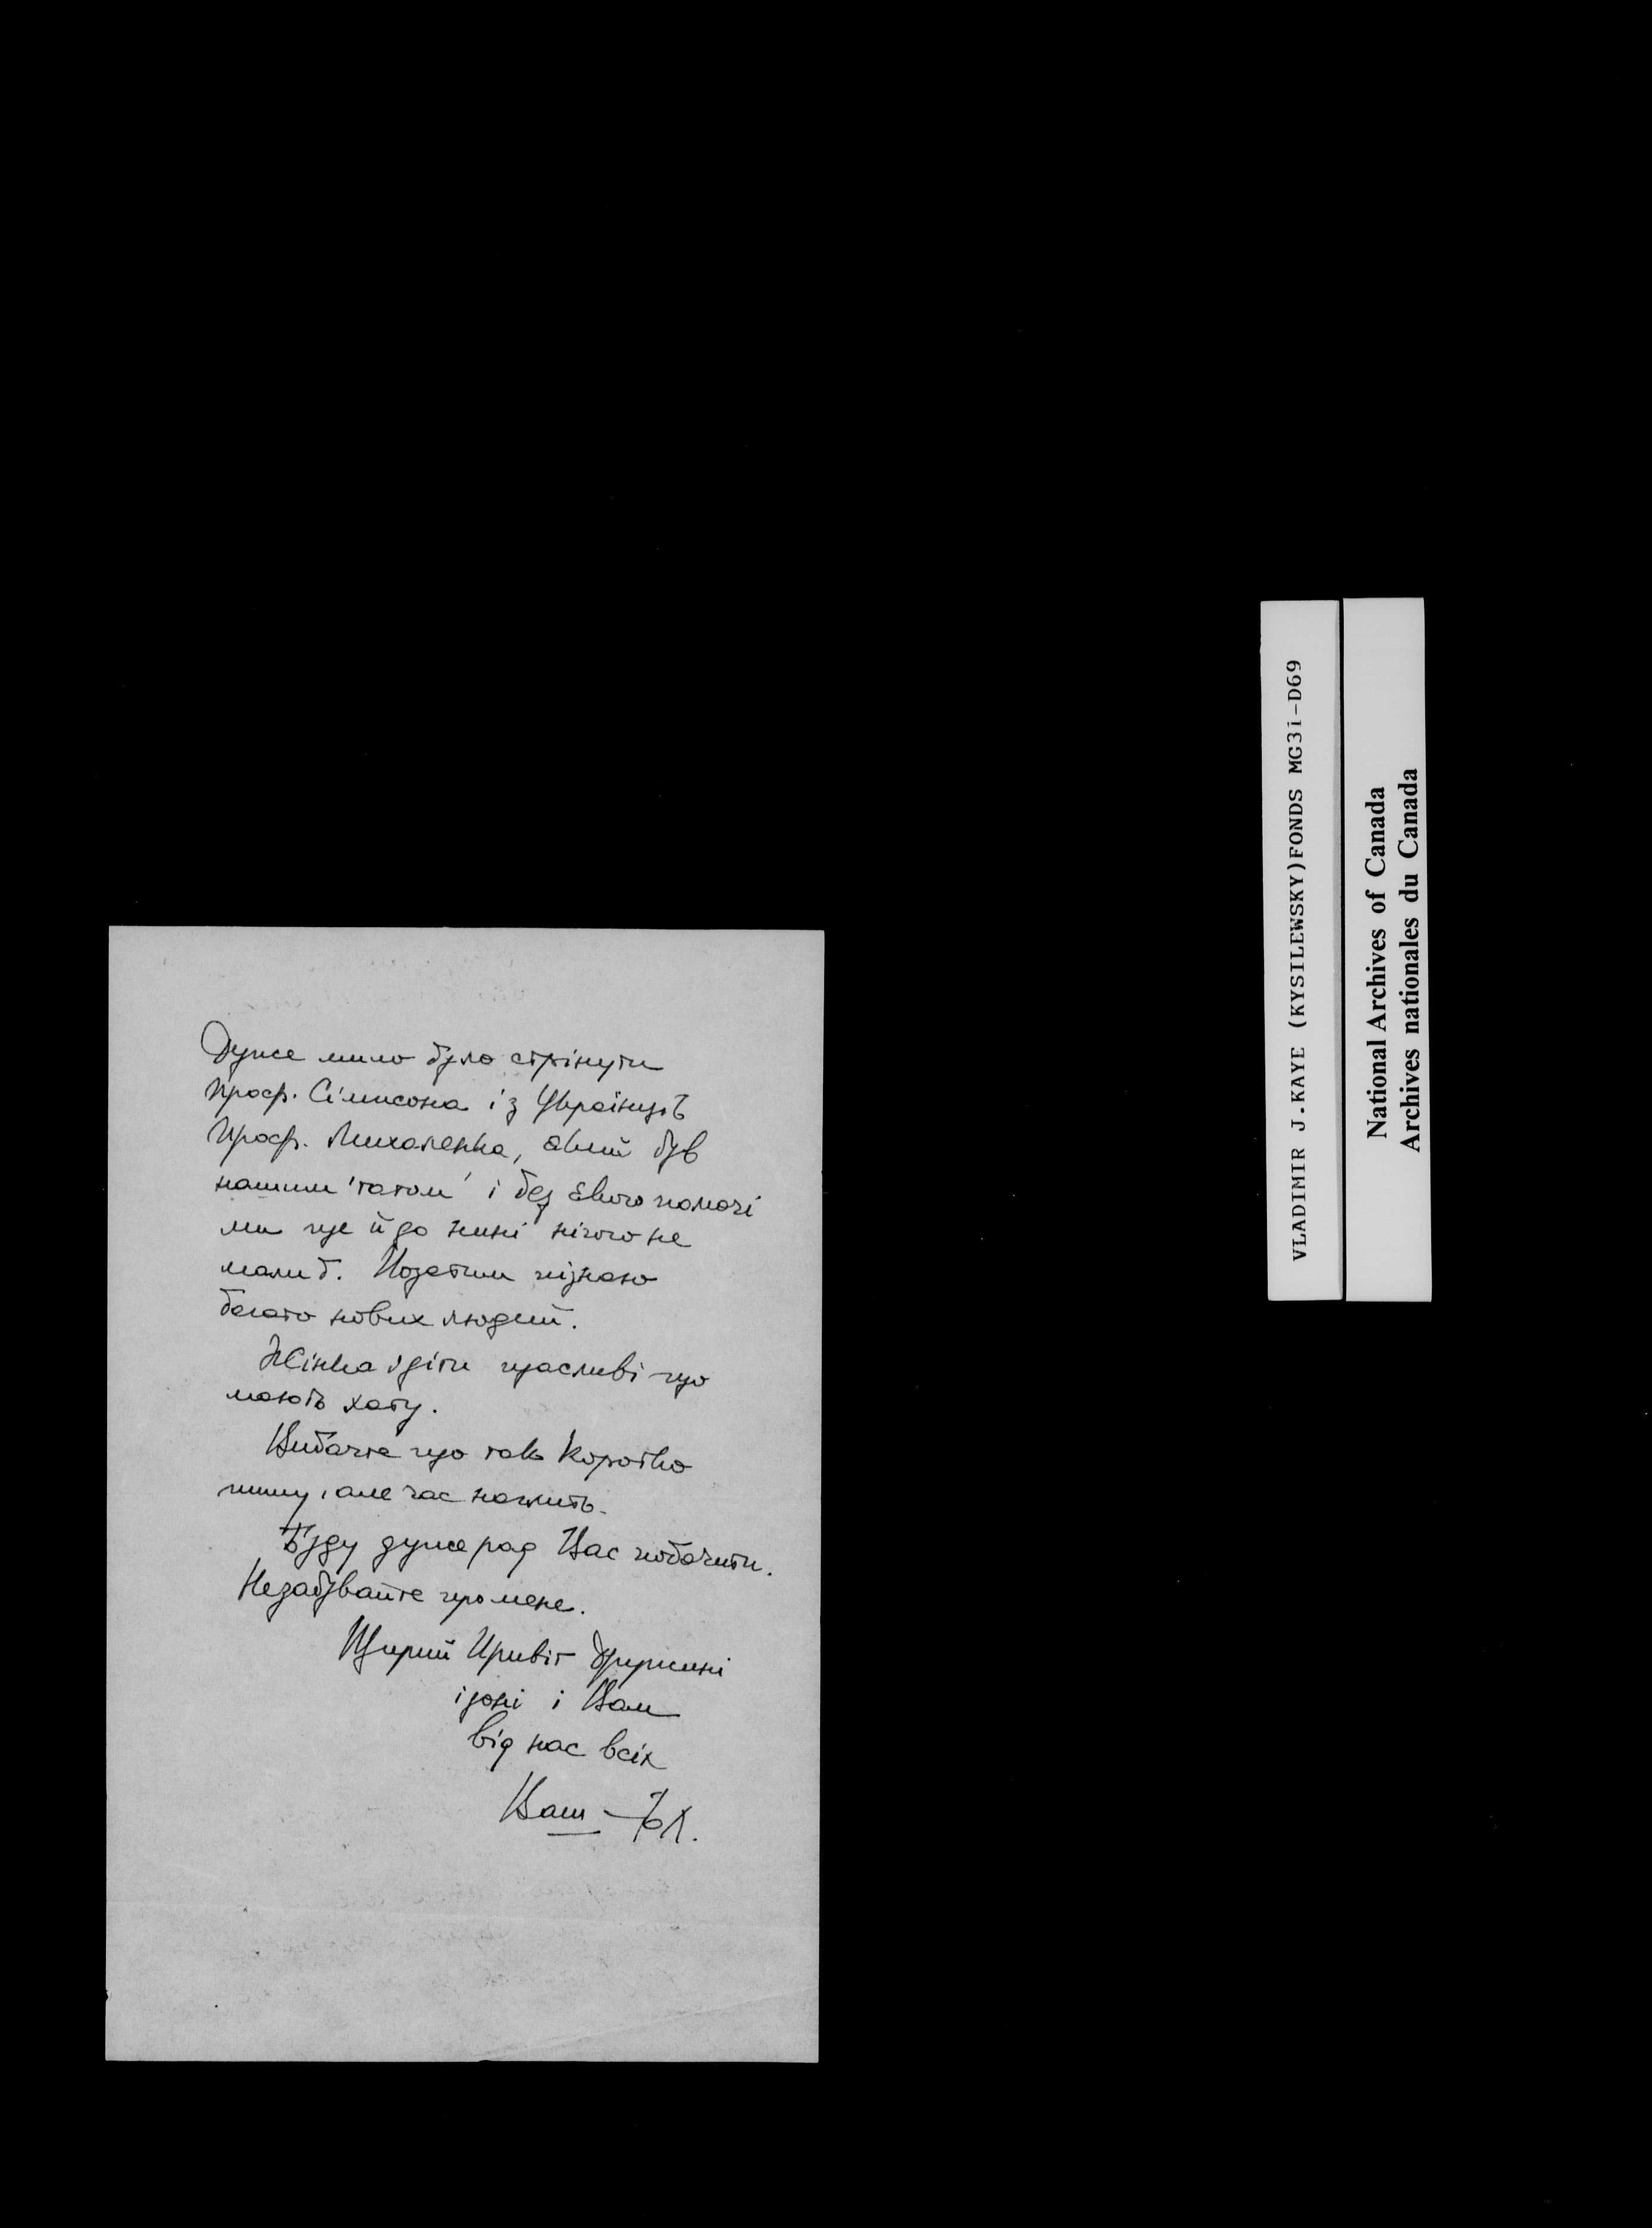 Дуже мило було стрінути
проф. Сімпсона і з Українців
Проф. Михаленка, який був
нашим 'татом' і без якого помочі
ми ще й до нині нічого не
мали б. Позатим пізнаю
багато нових людей.
Жінка і діти щасливі що
мають хату.
Вибачте що так коротко
пишу, але час наглить.
Буду дуже рад Вас побачити.
Незабувайте про мене.
Щирий Привіт Дружині
і доні і Вам
від нас всіх
Ваш
VLADIMIR J.KAYE (KYSILEWSKY)FONDS MG31-D69
National Archives of Canada
Archives nationales du Canada